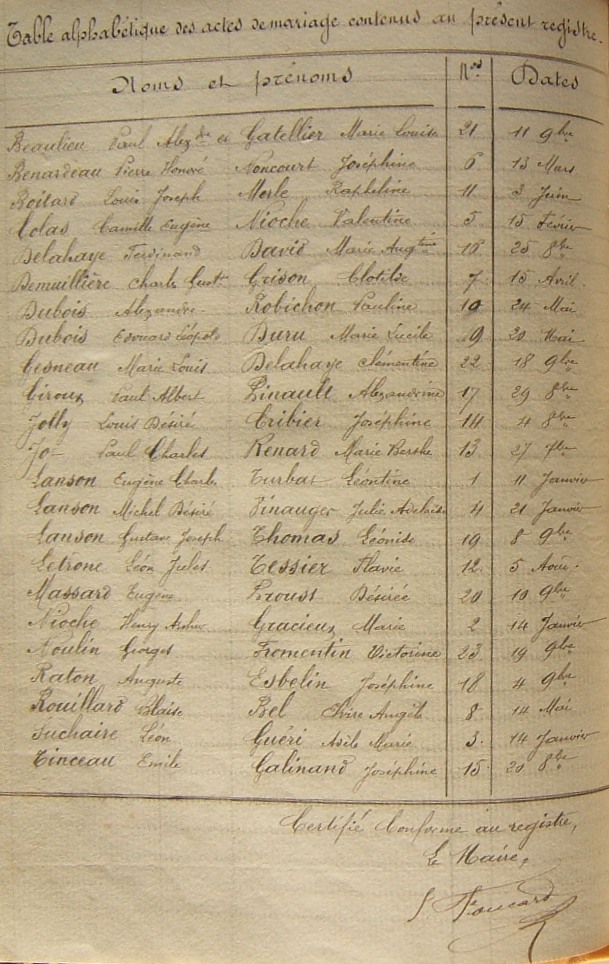 Table alphabétique des actes de mariage contenus au présent registre.
Noms et prénoms Nos Dates
Beaulieu Paul Alexdre et Gatellier Marie Louise 21 11 9bre
Benardeau Pierre Honoré Noncourt Joséphine 6 13 Mars
Boitard Louis Joseph Merle 11 3 Juin
Colas Camille Eugène Nioche Valentine 5 15 Février
Delahaye Ferdinand David Marie Augtine 16 25 8bre
Demuillière Charles Gust. Grison Clotilde 7 15 Avril
Dubois Alexandre Robichon Pauline 10 24 Mai
Dubois Edouard Léopold Buru Marie Lucile 9 20 Mai
Gesneau Marie Louis Delahaye Clémentine 22 18 9bre
Giroux Paul Albert Pinault Alexandrine 17 29 8bre
Jolly Louis Désiré Cribier Joséphine 14 4 8bre
Paul Charles Renard Marie Berthe 13 27 7bre
Lanson Eugène Charles Turbat Léontine 1 11 Janvier
Lanson Michel Désiré Pinauger Julie 4 21 Janvier
Lanson Gustave Joseph Thomas Léonide 19 8 9bre
Letrone Léon Jules Tessier Flavie 12 5 Août
Massard Eugène Proust Désirée 20 10 9bre
Nioche Henry Arthur Gracieux Marie 2 14 Janvier
Noulin Georges Fromentin Victorine 23 19 9bre
Raton Auguste Esbelin Joséphine 18 4 9bre
Rouillard Blaise Bel 8 14 Mai
Suchaire Léon Guéri Adèle Marie 3 14 Janvier
Tinceau Emile Galinand Joséphine 15 20 8bre
Certifié Conforme au registre,
Le Maire,
Foucard